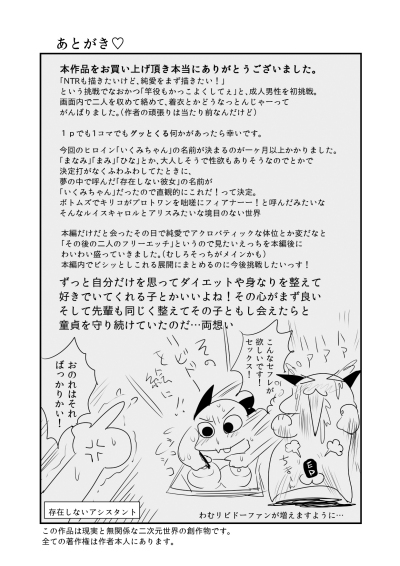 あとがき♡
本作品をお買い上げ頂き本当にありがとうございました。
「NTRも描きたいけど、純愛をまず描きたい！」
という挑戦でなおかつ「竿役もかっこよくしてぇ」と、成人男性を初挑戦。
画面内で二人を収めて絡めて、着衣とかどうなっとんじゃーって
がんばりました。（作者の頑張りは当たり前なんだけど）
１ｐでも1コマでもグッとくる何かがあったら幸いです。
今回のヒロイン「いくみちゃん」の名前が決まるのが一ヶ月以上かかりました。
「まなみ」「まみ」「ひな」とか、大人しそうで性欲もありそうなのでとかで
決定打がなくふわふわしてたときに、
夢の中で呼んだ「存在しない彼女」の名前が
「いくみちゃん」だったので直観的にこれだ！って決定。
ボトムズでキリコがプロトワンを咄嗟にフィアナー―！と呼んだみたいな
そんなルイスキャロルとアリスみたいな境目のない世界
本編だけだと会ったその日で純愛でアクロバティックな体位とか変だなと
「その後の二人のフリーエッチ」というので見たいえっちを本編後に
わいわい盛っていきました。（むしろそっちがメインかも）
本編内でビシッとしこれる展開にまとめるのに今後挑戦したいっす！
ずっと自分だけを思ってダイエットや身なりを整えて
好きでいてくれる子とかいいよね！その心がまず良い
そして先輩も同じく整えてその子ともし会えたらと
童貞を守り続けていたのだ…両想い
こんなセフレが
欲しいです！
セックス！
おのれはそれ
ばっかりかい！
存在しないアシスタント
わむリビドーファンが増えますように…
この作品は現実と無関係な二次元世界の創作物です。
全ての著作権は作者本人にあります。